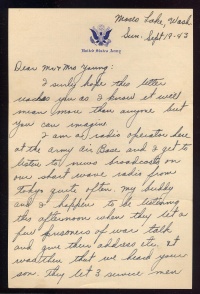 Moses Lake, Wash.
Sun. Sept 19-43
United States Army
Dear Mr & Mrs Young:
I surely hope this letter
reaches you as I know it will
mean more than anyone but
you can imagine.
I am a radio operator here
at the army Air Base and I get to
listen to news broadcasts on
our short wave radio from
tokyo quite often. My buddy
and I happen to be listening
this afternoon when they let a
few prisoners of war talk
and give their address etc. It
was then that we heard your
son. They let 3 service men